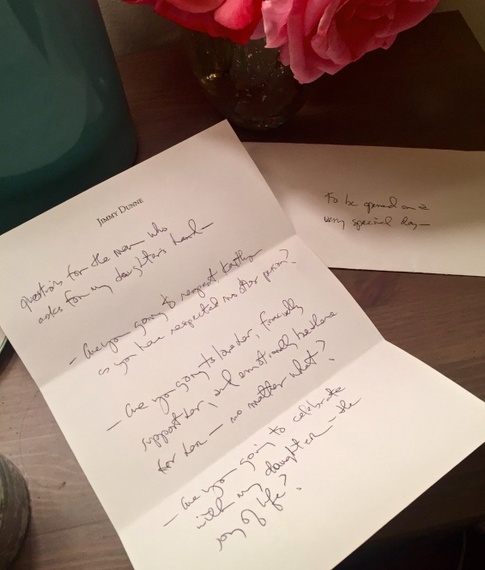 JIMMY DUNNE
questions for the man who
asks for my daughter's hand—
– Are you going to respect Kaitlyn
as you have respected no other person?
– Are you going to love her, financially
support her, and emotionally be there
for her — no matter what?
– Are you going to celebrate
with my daughter – the
joy of life?
to be opened on a
very special day—